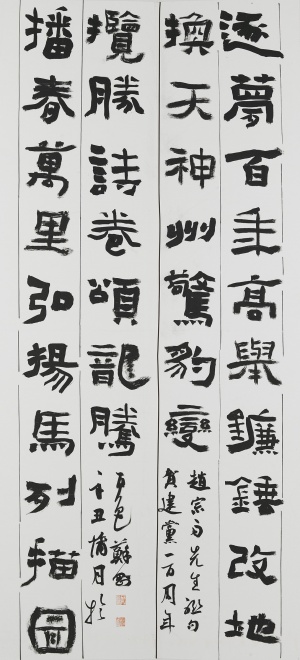 逐夢百年高舉鐮錘改地
換天神州驚豹變
趙宗先生句
賀建黨一百周年
播春萬里弘揚馬列描圖
攬勝詩卷頌龍騰
辛丑蒲月於
百色蘇